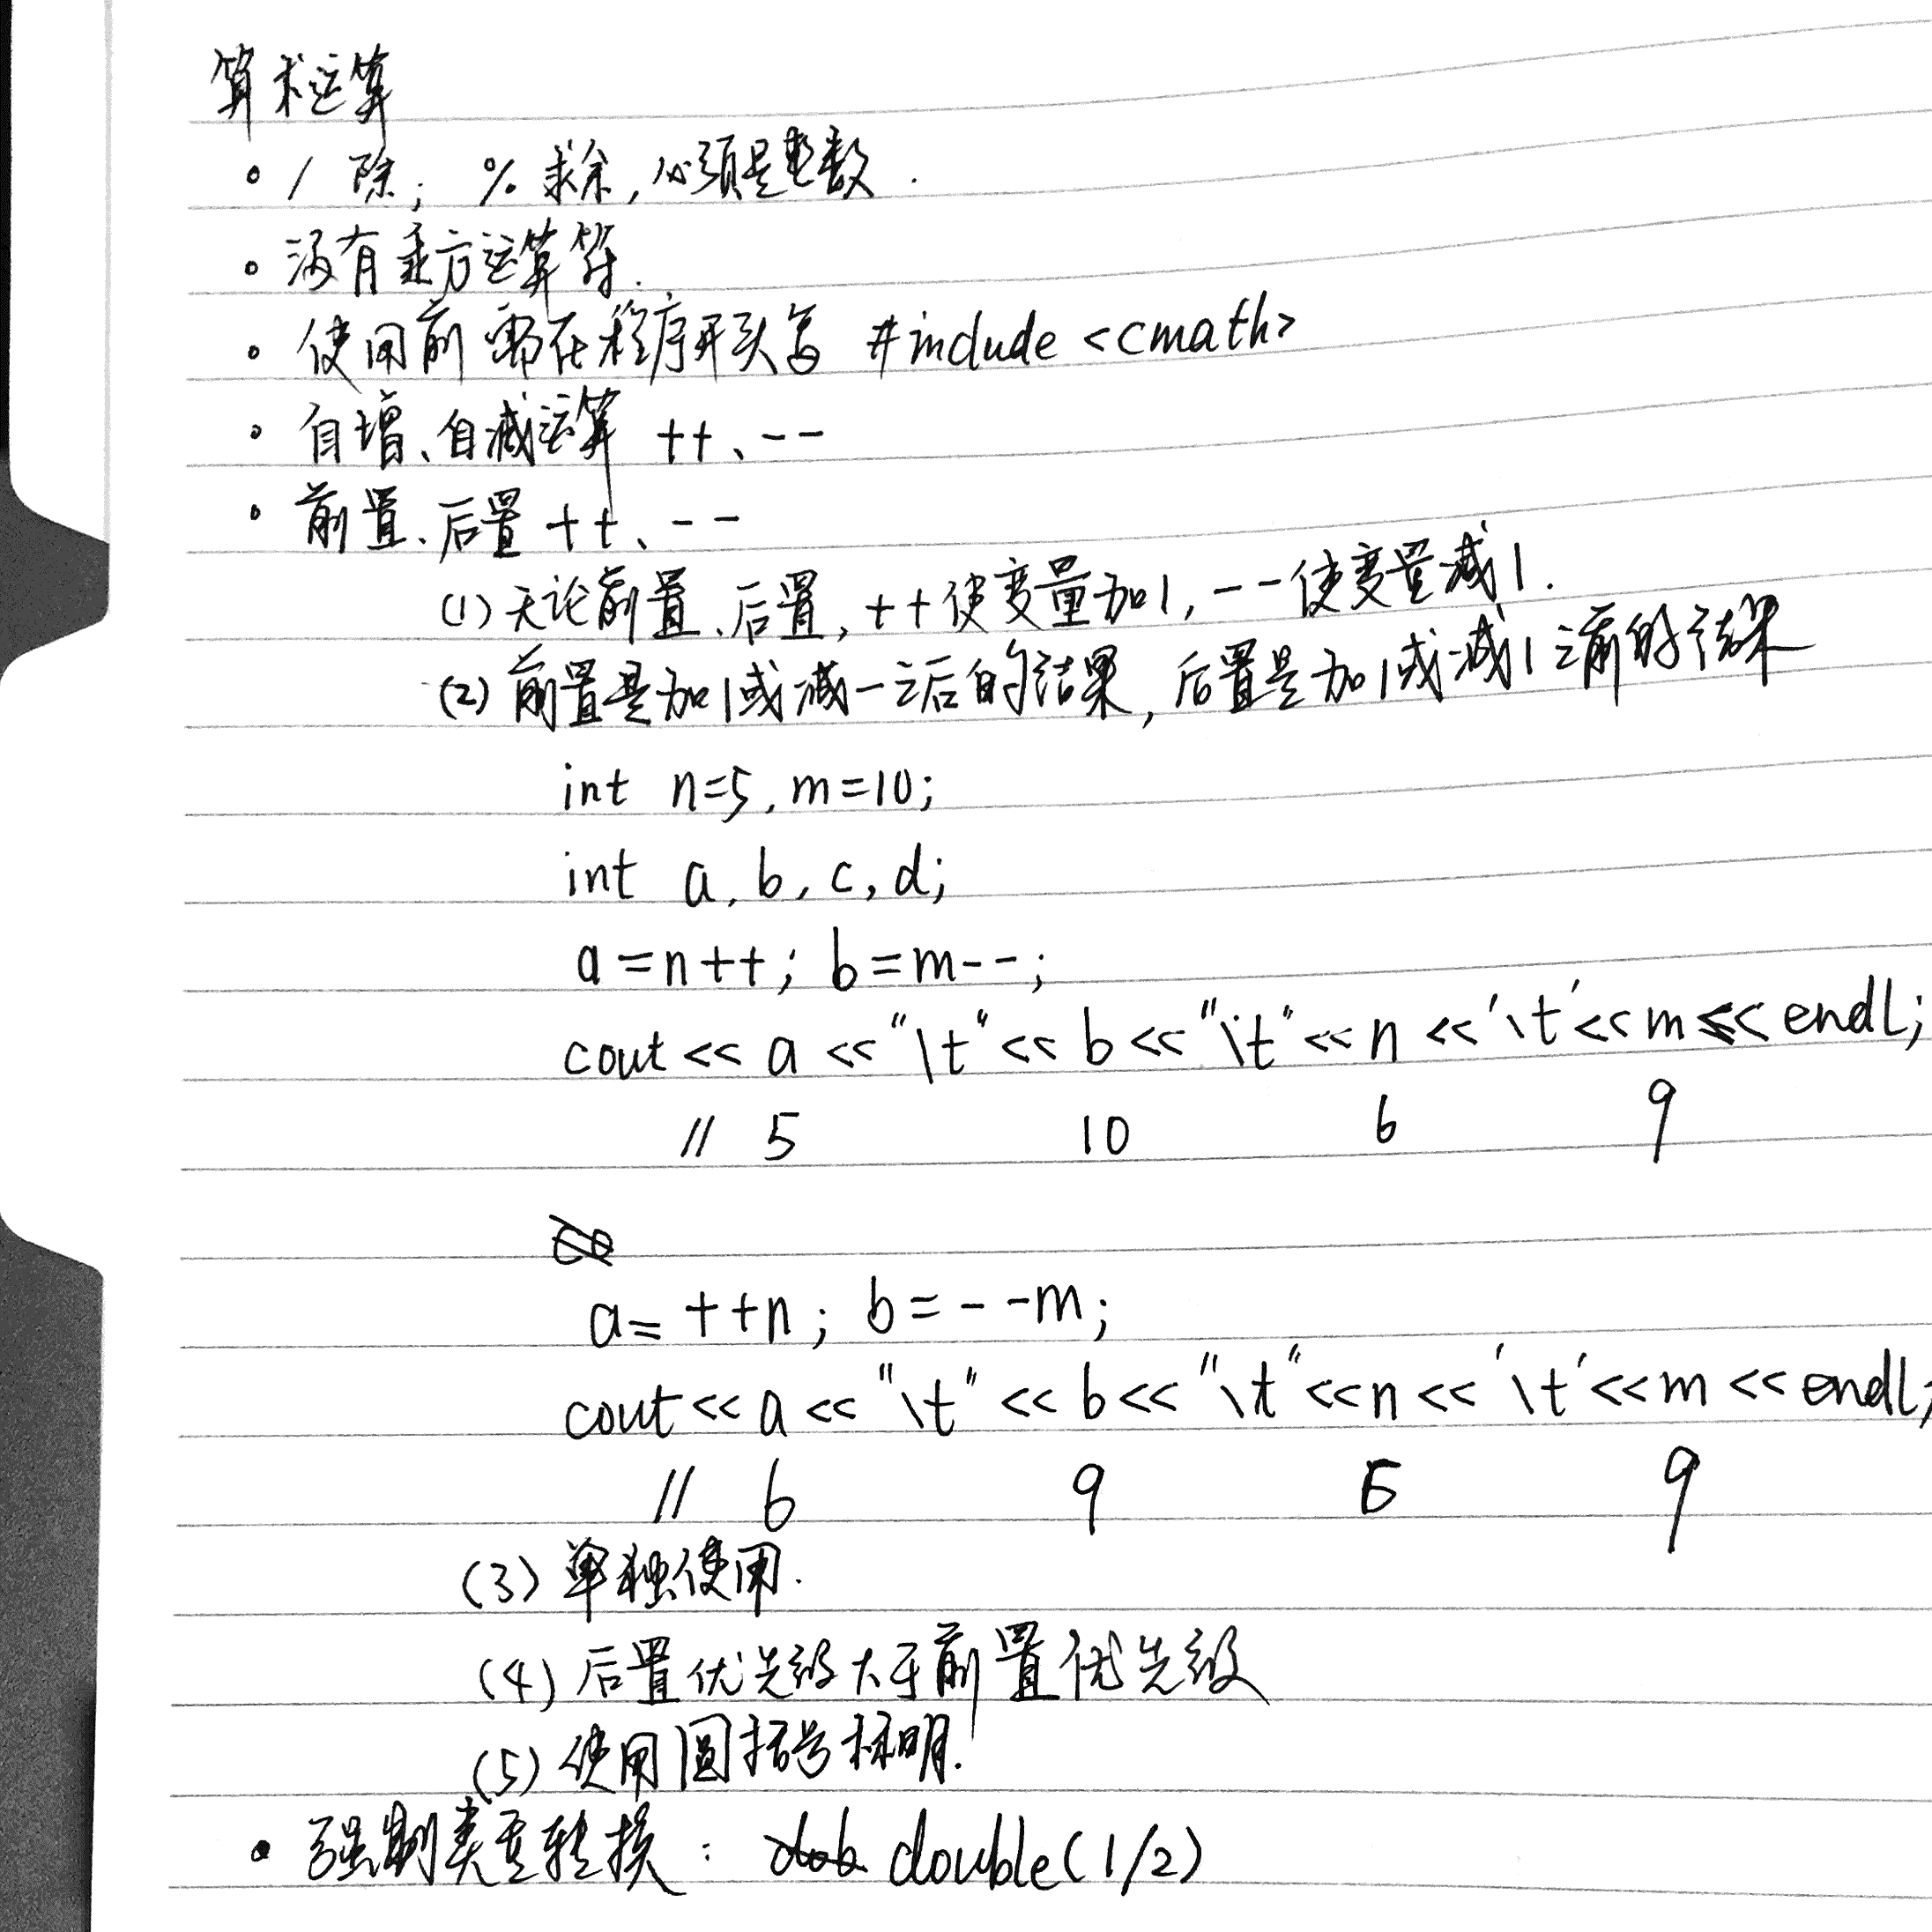 算术运算
。/ 除; % 求余,必须是整数.
。没有乘方运算符.
。使用前需在程序开头写 #include <cmath>
。自增、自减运算 ++、--
。前置、后置 ++、--
(1) 无论前置、后置, ++使变量加1, --使变量减1.
(2) 前置是加1或减一之后的结果, 后置是加1或减1之前的结果
int n=5, m=10;
int a, b, c, d;
a=n++; b=m--;
cout << a << "\t" << b << "\t" << n << '\t' << m << endl;
// 5 10 6 9
a= ++n; b= --m;
cout << a << "\t" << b << "\t" << n << '\t' << m << endl;
// 6 9 6 9
(3) 单独使用.
(4) 后置优先级大于前置优先级
(5) 使用圆括号标明.
• 强制类型转换: double(1/2)